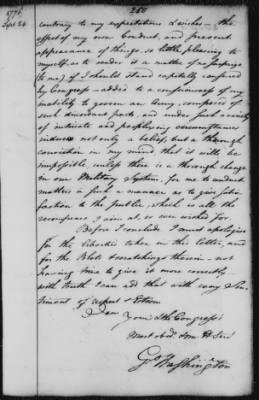 250
1776
Sept 24
contrary to my expectations I wishes — the
effect of my own Conduct, and present
appearance of things, so little pleasing to
myself, as to render it a matter of no surprize
(to me) if I should stand capitally censured
by Congress — added to a consciousness of my
inability to govern an Army, composed of
such discordant parts, and under such a variety
of intricate and perplexing circumstances
induces not only a belief, but a thorough
conviction in my mind that it will be
impossible, unless there is a thorough change
in our Military System, for me to conduct
matters in such a manner as to give satis
faction to the public, which is all the
recompence I aim at, or ever wished for.
Before I conclude I must apologize
for the liberties taken in this letter, and
for the Blots & scratchings therein — not
having time to give it more correctly —
with truth I can add that with every Sen
timent of respect & Esteem
I am Your & the Congress's
Most obed
Go Washington